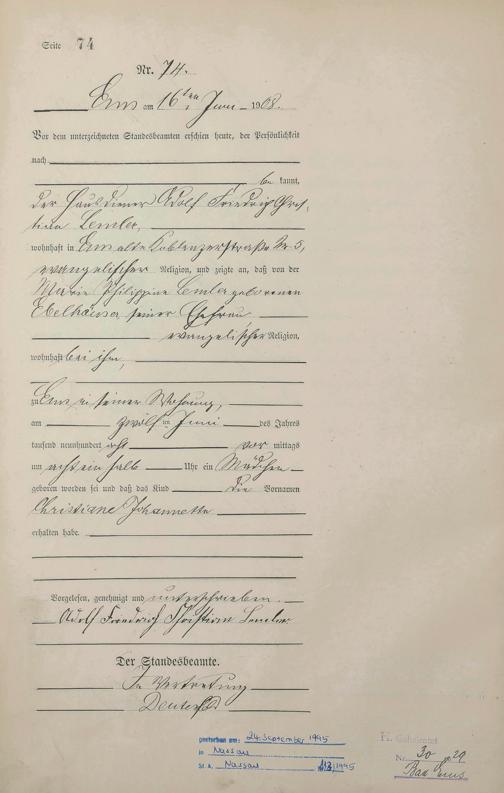 Seite 74
Nr. 74.
Ems am 16ten Juni 1908.
Vor dem unterzeichneten Standesbeamten erschien heute, der Persönlichkeit
nach
be kannt,
der Hausdiener Adolf Friedrich Chris-
tian Lemler,
wohnhaft in Ems alte Koblenzerstraße Nr 5,
evangelischer Religion, und zeigte an, daß von der
Marie Philippine Lemler geborenen
seiner Ehefrau
evangelischer Religion,
wohnhaft bei ihm,
zu Ems in seiner Wohnung,
am zwölften Juni des Jahres
tausend neunhundert acht vor mittags
um acht ein halb Uhr ein Mädchen
geboren worden sei und daß das Kind die Vornamen
Christiane Johannette
erhalten habe.
Vorgelesen, genehmigt und unterschrieben.
Adolf Friedrich Christian Lemler
Der Standesbeamte.
In Vertretung
gestorben am: 24. September 1995
in Nassau
St. A. Nassau 113/1995
H. Geheiratet
Nr. 30 29
Bad Ems